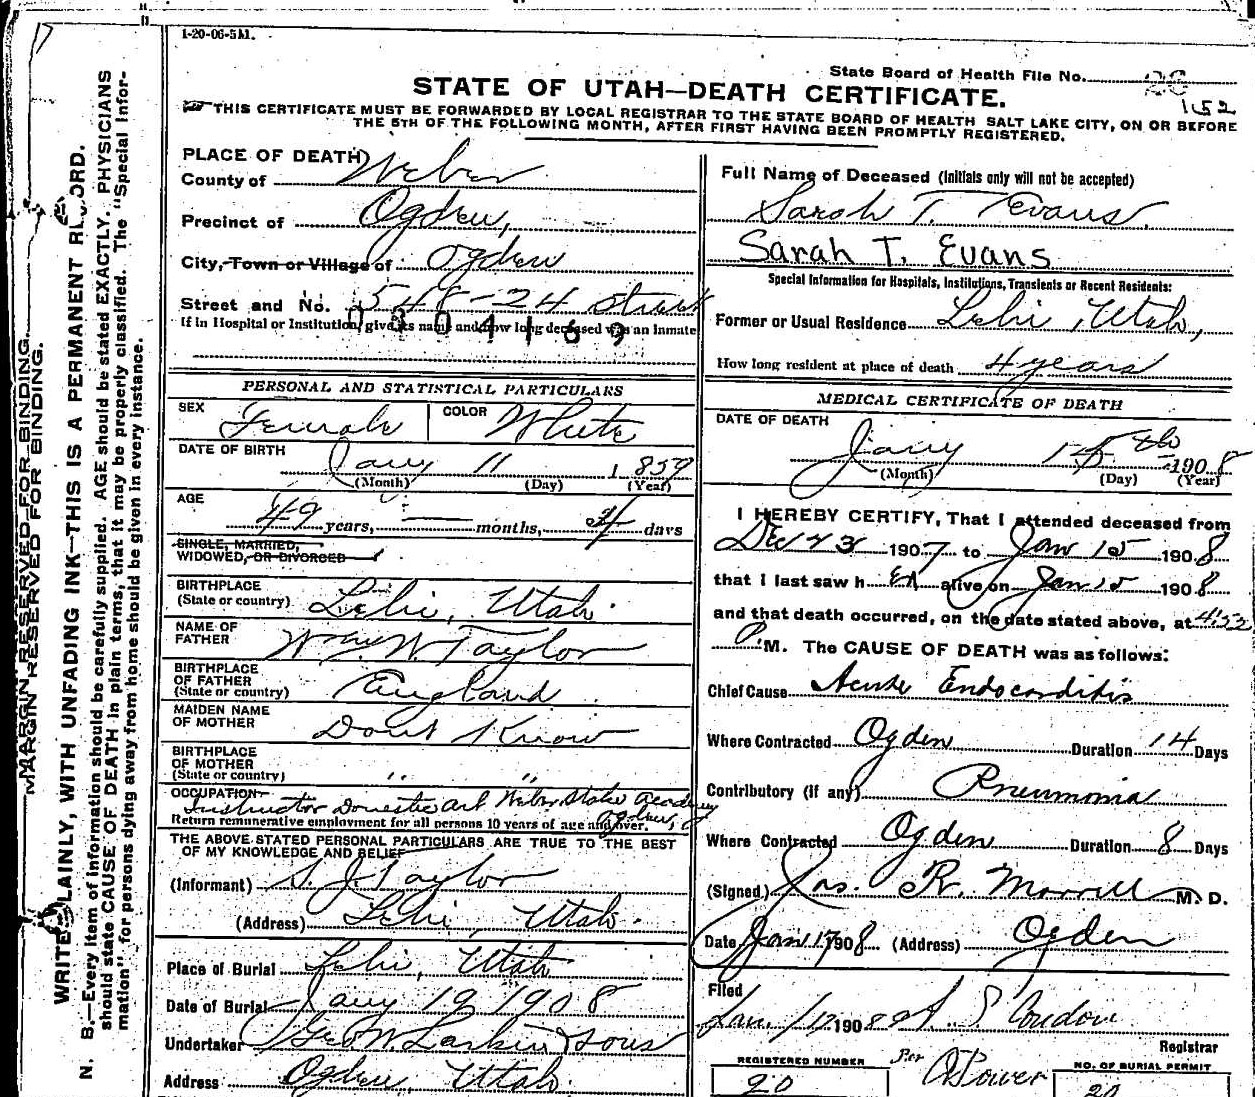 1-20-06-5M.
State Board of Health File No. 28
1152
STATE OF UTAH—DEATH CERTIFICATE.
THIS CERTIFICATE MUST BE FORWARDED BY LOCAL REGISTRAR TO THE STATE BOARD OF HEALTH SALT LAKE CITY, ON OR BEFORE
THE 5TH OF THE FOLLOWING MONTH, AFTER FIRST HAVING BEEN PROMPTLY REGISTERED.
MARGIN RESERVED FOR BINDING.
MARGIN RESERVED FOR BINDING.
WRITE PLAINLY, WITH UNFADING INK—THIS IS A PERMANENT RECORD.
N. B.—Every item of information should be carefully supplied. AGE should be stated EXACTLY. PHYSICIANS
should state CAUSE OF DEATH in plain terms, that it may be properly classified. The "Special Infor-
mation" for persons dying away from home should be given in every instance.
PLACE OF DEATH
County of Weber
Precinct of Ogden,
City, Town or Village of Ogden
Street and No. 548-24 Street
If in Hospital or Institution, give its name and how long deceased was an inmate
0304169
PERSONAL AND STATISTICAL PARTICULARS
SEX Female COLOR White
DATE OF BIRTH Jany 11 1859
(Month) (Day) (Year)
AGE
49 years, — months, 4 days
SINGLE, MARRIED,
WIDOWED, OR DIVORCED
BIRTHPLACE
(State or country) Lehi, Utah.
NAME OF
FATHER Wm. W. Taylor
BIRTHPLACE
OF FATHER
(State or country) England
MAIDEN NAME
OF MOTHER Dont Know
BIRTHPLACE
OF MOTHER
(State or country) " "
OCCUPATION
Instructor Domestic Art Weber State Academy
Ogden, U
Return remunerative employment for all persons 10 years of age and over.
THE ABOVE STATED PERSONAL PARTICULARS ARE TRUE TO THE BEST
OF MY KNOWLEDGE AND BELIEF
(Informant) S. J. Taylor
(Address) Lehi, Utah.
Place of Burial Lehi, Utah
Date of Burial Jany 19 1908
Undertaker Geo W. Larkin & Sons
Address Ogden, Utah.
Full Name of Deceased (Initials only will not be accepted)
Sarah T. Evans
Sarah T. Evans
Special Information for Hospitals, Institutions, Transients or Recent Residents:
Former or Usual Residence Lehi, Utah,
How long resident at place of death 4 years
MEDICAL CERTIFICATE OF DEATH
DATE OF DEATH
Jany 15th 1908
(Month) (Day) (Year)
I HEREBY CERTIFY, That I attended deceased from
Dec 23 1907 to Jan 15 1908
that I last saw h er alive on Jan 15 1908
and that death occurred, on the date stated above, at 4:52
P M. The CAUSE OF DEATH was as follows:
Chief Cause Acute Endocarditis
Where Contracted Ogden Duration 14 Days
Contributory (if any) Pneumonia
Where Contracted Ogden Duration 8 Days
(Signed) Jas. R. Morrell M. D.
Date Jan 17 1908 (Address) Ogden
Filed
Jan. 17 1908
Registrar
REGISTERED NUMBER
20
Per
NO. OF BURIAL PERMIT
20